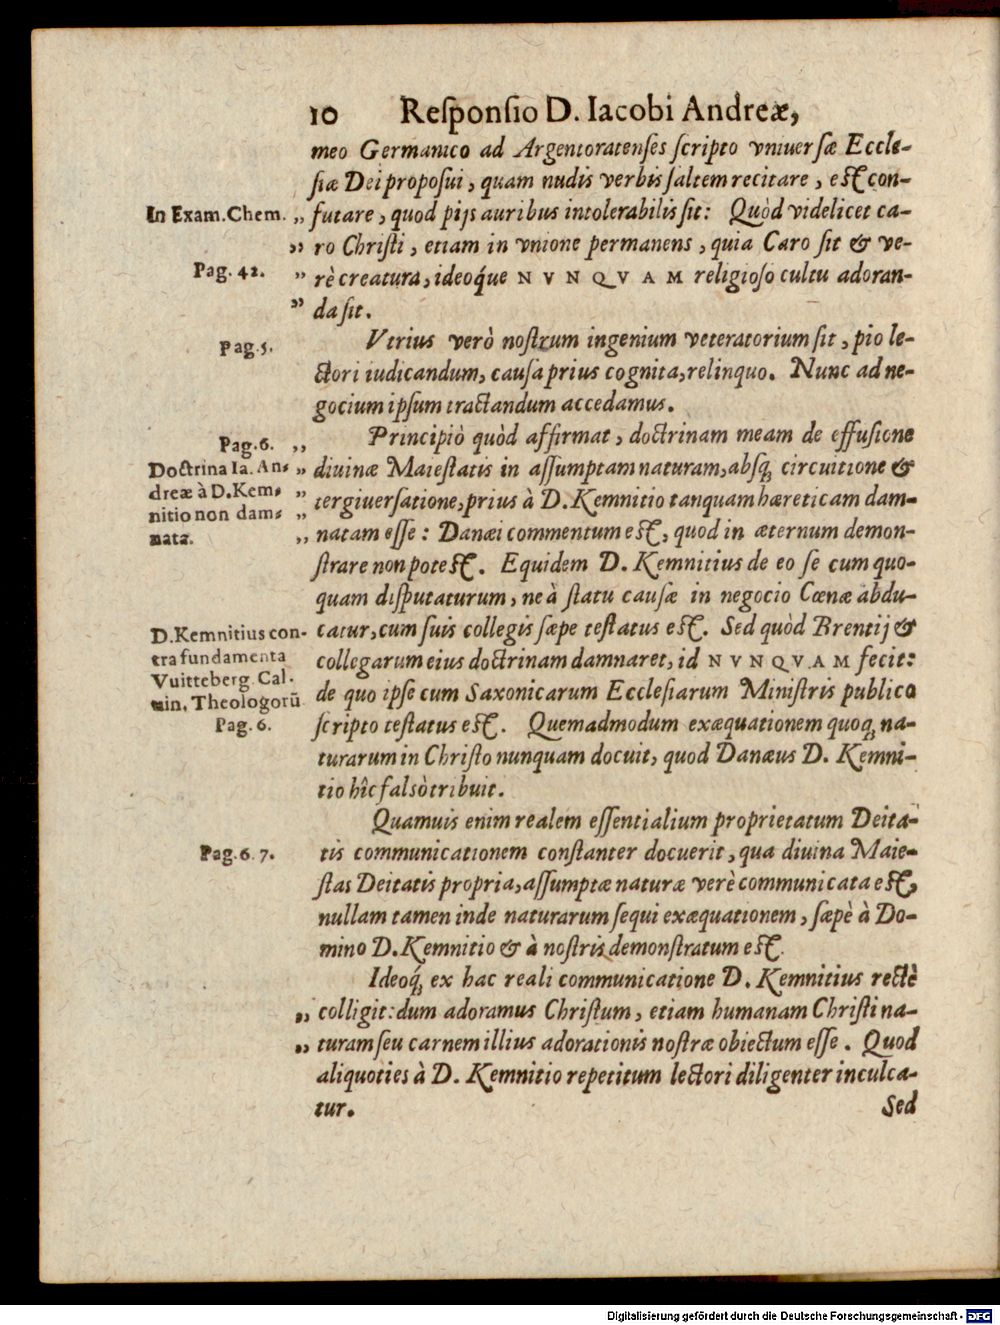 10 Reſponſio D. Iacobi Andreæ,
meo Germanico ad Argentoratenſes ſcripto vniuerſæ Eccle-
ſiæ Dei propoſui, quam nudis verbis ſaltem recitare, eſt con-
In Exam. Chem. „ futare, quod pijs auribus intolerabilis ſit: Quòd videlicet ca-
„ ro Chriſti, etiam in vnione permanens, quia Caro ſit & ve-
Pag. 42. „ rè creatura, ideoq́ue NVNQVAM religioſo cultu adoran-
„ da ſit.
Vtrius verò noſtrum ingenium veteratorium ſit, pio le-
Pag. 5.
ctori iudicandum, cauſa prius cognita, relinquo. Nunc ad ne-
gocium ipſum tractandum accedamus.
Pag. 6. „ Principiò quòd affirmat, doctrinam meam de effuſione
Doctrina Ia. An- „ diuinæ Maieſtatis in aſſumptam naturam, abſq; circuitione &
dreæ à D. Kem- „ tergiuerſatione, prius à D. Kemnitio tanquam hæreticam dam-
nitio non dam- „
nata. „ natam eſſe: Danæi commentum eſt, quod in æternum demon-
ſtrare non poteſt. Equidem D. Kemnitius de eo ſe cum quo-
quam diſputaturum, ne à ſtatu cauſæ in negocio Cœnæ abdu-
D. Kemnitius con- catur, cum ſuis collegis ſæpe teſtatus eſt. Sed quòd Brentij &
tra fundamenta collegarum eius doctrinam damnaret, id NVNQVAM fecit:
Vuitteberg. Cal-
uin. Theologorū de quo ipſe cum Saxonicarum Eccleſiarum Miniſtris publico
Pag. 6. ſcripto teſtatus eſt. Quemadmodum exæquationem quoq; na-
turarum in Chriſto nunquam docuit, quod Danæus D. Kemni-
tio hîc falsò tribuit.
Quamuis enim realem eſſentialium proprietatum Deita-
Pag. 6. 7. tis communicationem conſtanter docuerit, qua diuina Maie-
ſtas Deitatis propria, aſſumptæ naturæ verè communicata eſt,
nullam tamen inde naturarum ſequi exæquationem, ſæpè à Do-
mino D. Kemnitio & à noſtris demonſtratum eſt.
Ideoq́; ex hac reali communicatione D. Kemnitius rectè
„ colligit: dum adoramus Chriſtum, etiam humanam Chriſti na-
„ turam ſeu carnem illius adorationis noſtræ obiectum eſſe. Quod
aliquoties à D. Kemnitio repetitum lectori diligenter inculca-
tur. Sed
Digitalisierung gefördert durch die Deutsche Forschungsgemeinschaft - DFG